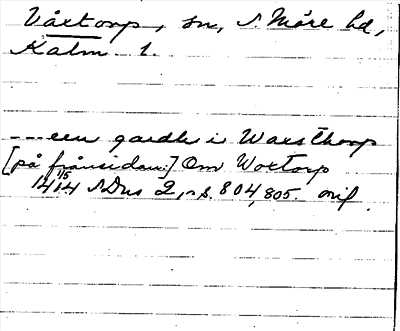 Våxtorp, sn, S. Möre hd,
Kalm. l.
---een gardh i Waxsthorp
[på frånsidan:] Om Woxtorp
1414 1/5 SDns 2, s. 804, 805. orig.